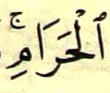 ٱلْحَرَامِۚ